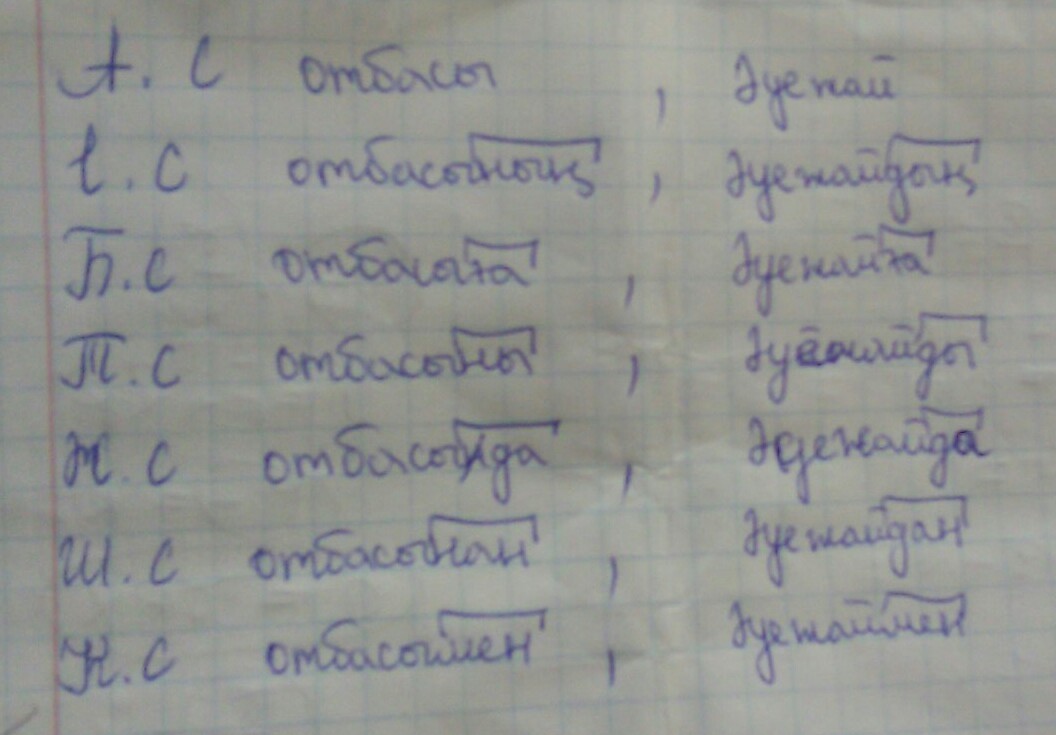 А. С отбасы , Әуежай
І. С отбасының , Әуежайдың
Б. С отбасыға , Әуежайға
Т. С отбасыны , Әуежайды
Ж. С отбасында , Әуежайда
Ш. С отбасынан , Әуежайдан
К. С отбасымен , Әуежаймен